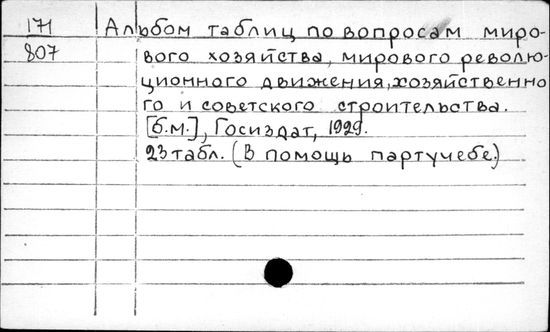 171 Альбом таблиц по вопросам миро-
807 вого хозяйства, мирового револю-
ционного движения, хозяйственно
го и советского строительства.
[б.м.], Госиздат, 1929.
23 табл. (В помощь партучебе.)